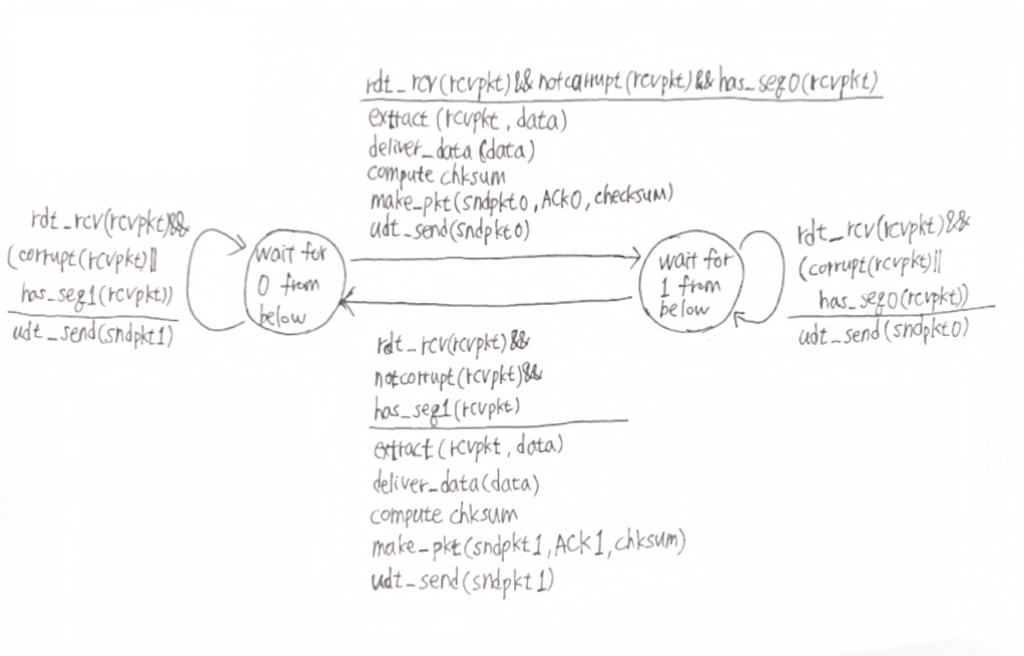 rdt_rcv(rcvpkt)&&notcorrupt(rcvpkt)&&has_seq0(rcvpkt)
extract(rcvpkt,data)
deliver_data(data)
compute chksum
make_pkt(sndpkt0,ACK0,checksum)
udt_send(sndpkt0)
rdt_rcv(rcvpkt)&&
(corrupt(rcvpkt)||
has_seq1(rcvpkt))
udt_send(sndpkt1)
wait for
0 from
below
wait for
1 from
below
rdt_rcv(rcvpkt)&&
(corrupt(rcvpkt)||
has_seq0(rcvpkt))
udt_send(sndpkt0)
rdt_rcv(rcvpkt)&&
notcorrupt(rcvpkt)&&
has_seq1(rcvpkt)
extract(rcvpkt,data)
deliver_data(data)
compute chksum
make_pkt(sndpkt1,ACK1,chksum)
udt_send(sndpkt1)